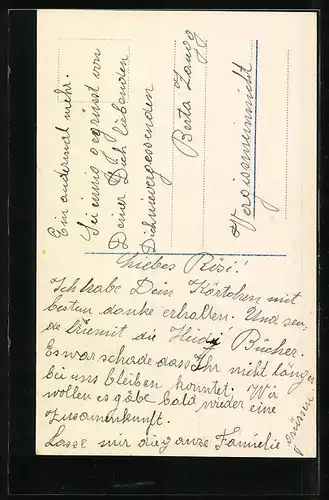 Liebes Rösi!
Ich habe Dein Kärtchen mit
bestem danke erhalten. Und sen-
de hiemit die Heidi Bücher.
Es war schade dass Ihr nicht länger
bei uns bleiben konntet. Wir
wollen es gäbe bald wieder eine
Zusammkunft.
Lasse mir die ganze Familie
grüssen.
Ein andermal mehr.
Sei innig gegrüsst von
Deiner Dich liebenden
Dichnievergessenden
Berta Zaugg
Vergissmeinnicht